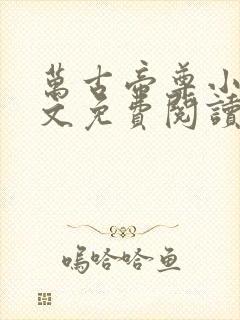 萬古帝尊小
文免費閱讀
嗚哈哈鱼